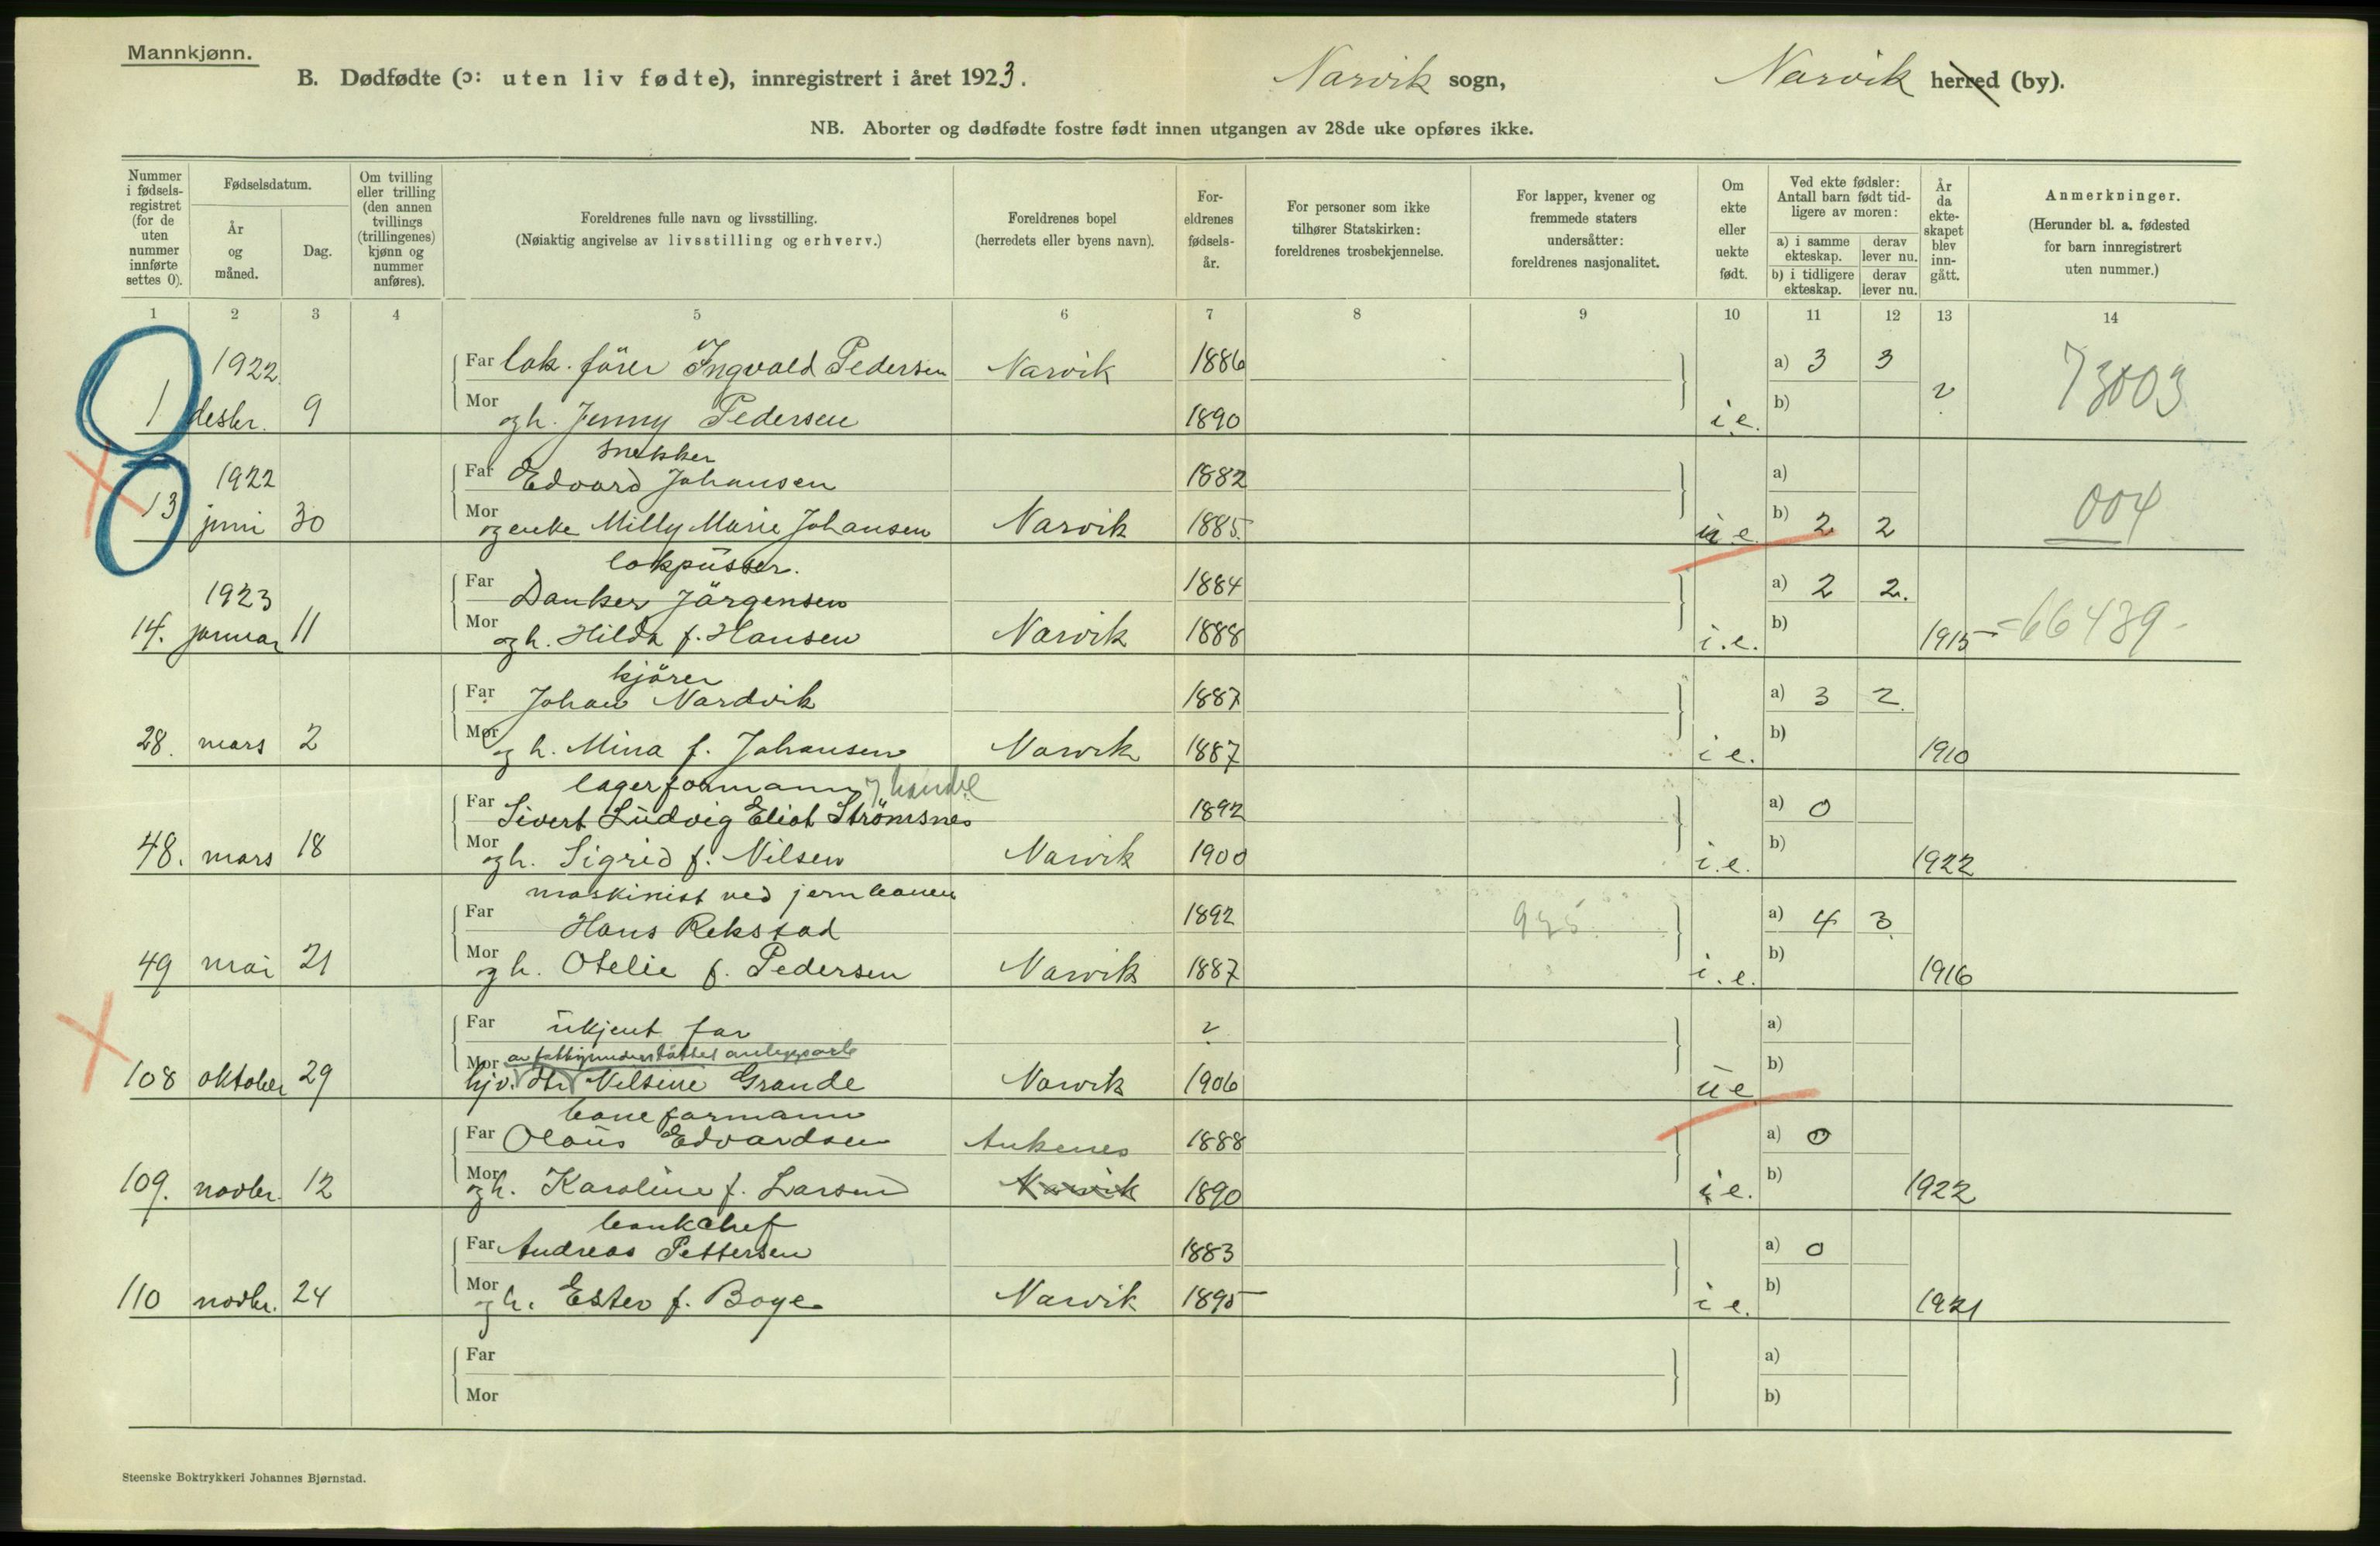 Mannkjønn.
B. Dødfødte (ɔ: uten liv fødte), innregistrert i året 1923. Narvik sogn, Narvik herred (by).
NB. Aborter og dødfødte fostre født innen utgangen av 28de uke opføres ikke.
Nummer i fødsels-registret (for de uten nummer innførte settes 0).
Fødselsdatum.
År og måned.
Dag.
Om tvilling eller trilling (den annen tvillings (trillingenes) kjønn og nummer anføres).
Foreldrenes fulle navn og livsstilling.
(Nøiaktig angivelse av livsstilling og erhverv.)
Foreldrenes bopel
(herredets eller byens navn).
For-eldrenes fødsels-år.
For personer som ikke tilhører Statskirken: foreldrenes trosbekjennelse.
For lapper, kvener og fremmede staters undersåtter: foreldrenes nasjonalitet.
Om ekte eller uekte født.
Ved ekte fødsler: Antall barn født tid-ligere av moren:
a) i samme ekteskap. derav lever nu.
b) i tidligere ekteskap. derav lever nu.
År da ekte-skapet blev inn-gått.
Anmerkninger.
(Herunder bl. a. fødested for barn innregistrert uten nummer.)
1 2 3 4 5 6 7 8 9 10 11 12 13 14
1922 Far lok. förer Ingvald Pedersen Narvik 1886 a) 3 3 73003
1 desbr. 9 Mor og h. Jenny Pedersen 1890 i.e. b) ?
snekker
1922 Far Edvard Johansen 1882 a)
13 juni 30 Mor og enke Milly Marie Johansen Narvik 1885 u.e. b) 2 2 004
lokpüsser.
1923 Far Danker Jörgensen 1884 a) 2 2.
14. januar 11 Mor og h. Hilda f. Hansen Narvik 1888 i.e. b) 1915 -66439-
kjörer
Far Johan Nordvik 1887 a) 3 2.
28. mars 2 Mor og h. Mina f. Johansen Narvik 1887 i e. b) 1910
lagerformann handel
Far Sivert Lüdvig Eliot Strömsnes 1892 a) 0
48. mars 18 Mor og h. Sigrid f. Nilsen Narvik 1900 i.e. b) 1922
maskinist ved jernbanen
Far Hans Rekstad 1892 a) 4 3
49 mai 21 Mor og h. Otelie f. Pedersen Narvik 1887 i.e. b) 1916
Far ükjent far ? a)
Mor av fattigunderstöttet anleggsarb
108 oktober 29 hjv. dtr Nilsine Grande Narvik 1906 üe b)
baneformann
Far Olaüs Edvardsen Ankenes 1888 a) 0
109. novbr. 12 Mor og h. Karoline f. Larsen Narvik 1890 i e. b) 1922
bankchef
Far Andreas Pettersen 1883 a) 0
110 novbr. 24 Mor og h. Ester f. Boye Narvik 1895 i e. b) 1921
Far a)
Mor b)
Steenske Boktrykkeri Johannes Bjørnstad.